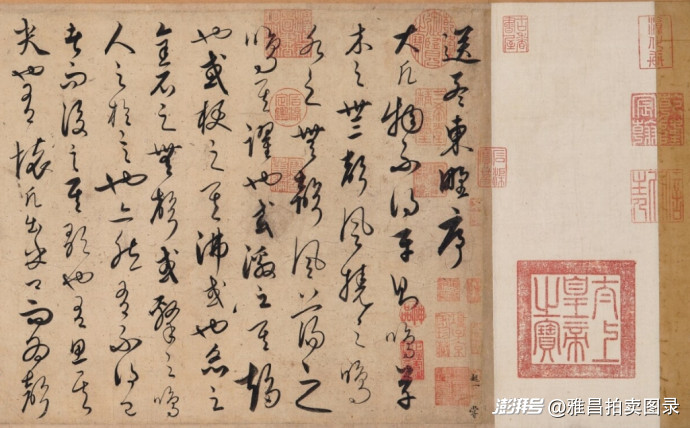 送孟東野序
大凡物不得平則鳴草
木之無聲風撓之鳴
水之無聲風蕩之
鳴其躍也或激之其趨
也或梗之其沸或也炙之
金石之無聲或擊之鳴
人之於言也亦然有不得已
者而後言其歌也有思其
哭也有懷凡出乎口而為聲
太上皇帝之寶
澎湃号 @雅昌拍卖图录